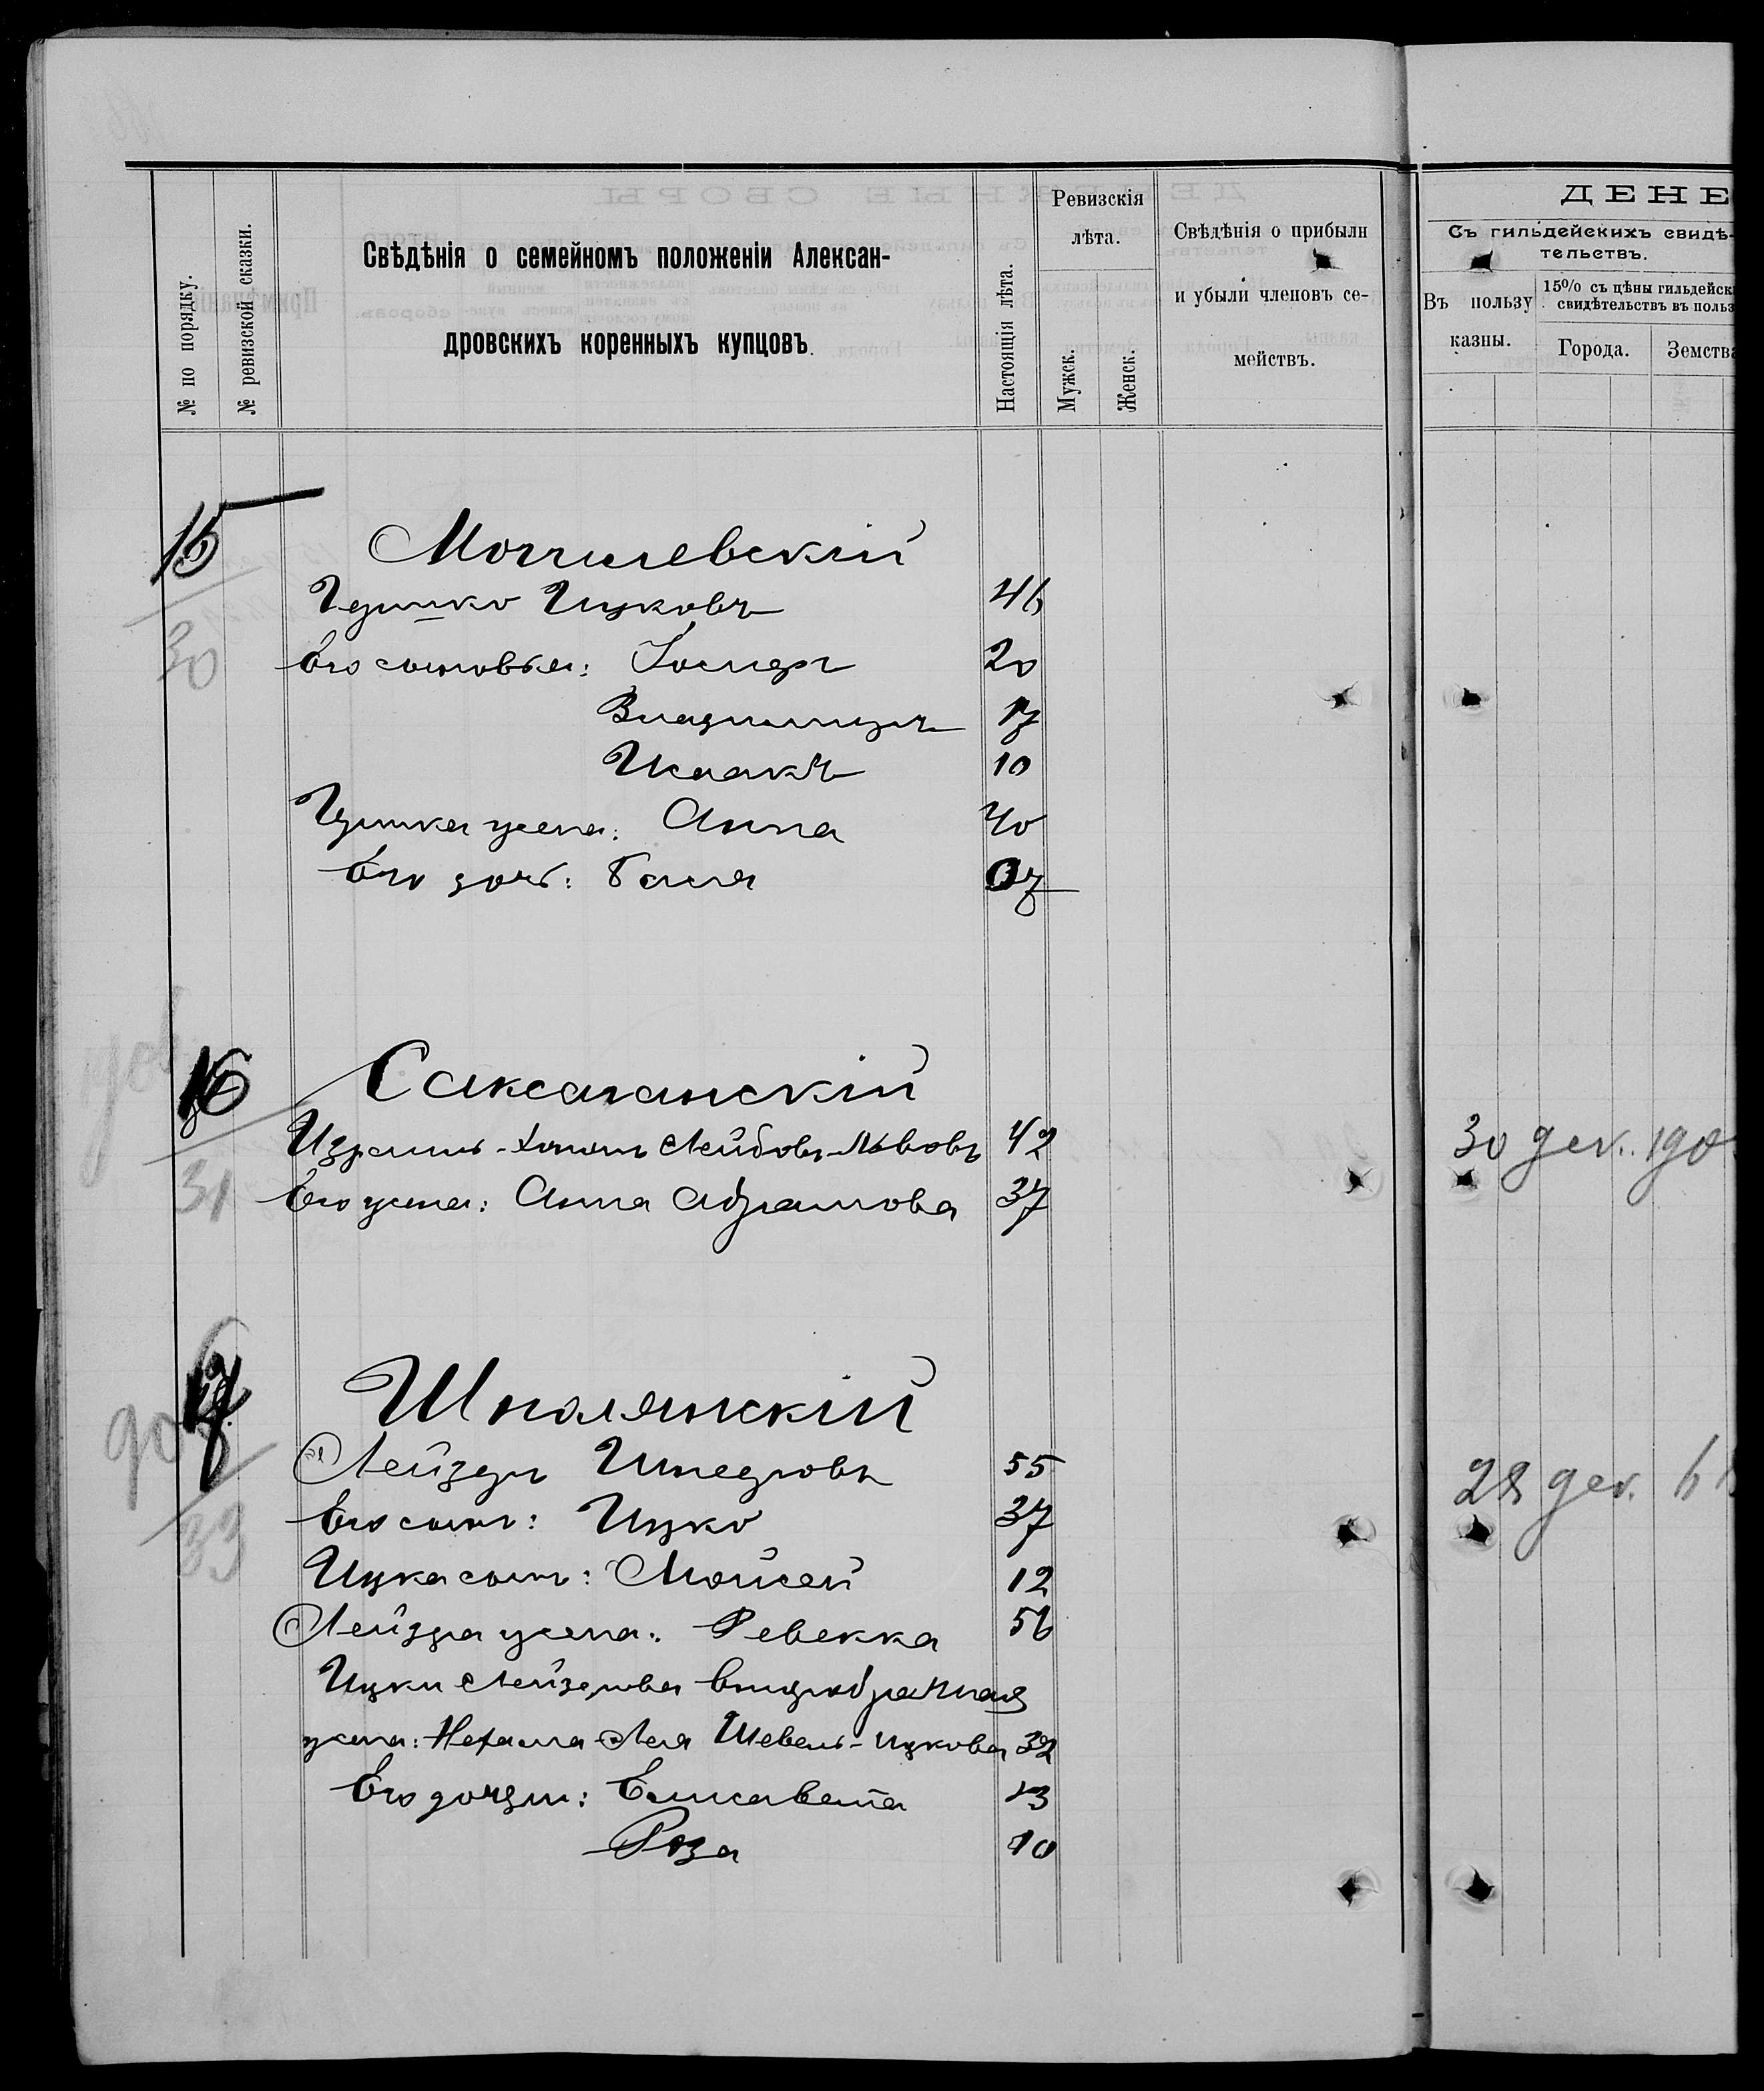 № по порядку.
№ ревизской сказки.
Свѣдѣнія о семейномъ положеніи Алексан-
дровскихъ коренныхъ купцовъ.
Настоящія лѣта.
Ревизскія
лѣта.
Мужек.
Женск.
Свѣдѣнія о прибыли
и убыли членовъ се-
мействъ.
ДЕНЕ
Съ гильдейскихъ свидѣ-
тельствъ.
Въ пользу
казны.
15% съ цѣны гильдейск
свидѣтельствъ въ польз
Города.
Земства
15
Могилевскій
30
Ицковъ 46
Его сыновья: Іосифъ 20
Владиміръ 17
Исаакъ 10
жена: Анна 40
Его дочь: Бася 07
16
Саксаганскій
31
Израиль- Лейбовъ-Львовъ 42
30 дек. 190
Его жена: Анна Абрамова 37
17
Шполянскій
33
Лейзеръ Шнееровъ 55
28 дек.
Его сынъ: Ицко 37
Ицка сынъ: Мойсей 12
Лейзера жена: Ревекка 56
Ицки Лейзерова
жена: Нехама-Лея Шевель-Ицкова 32
Его дочери: Елисавета 13
Роза 10